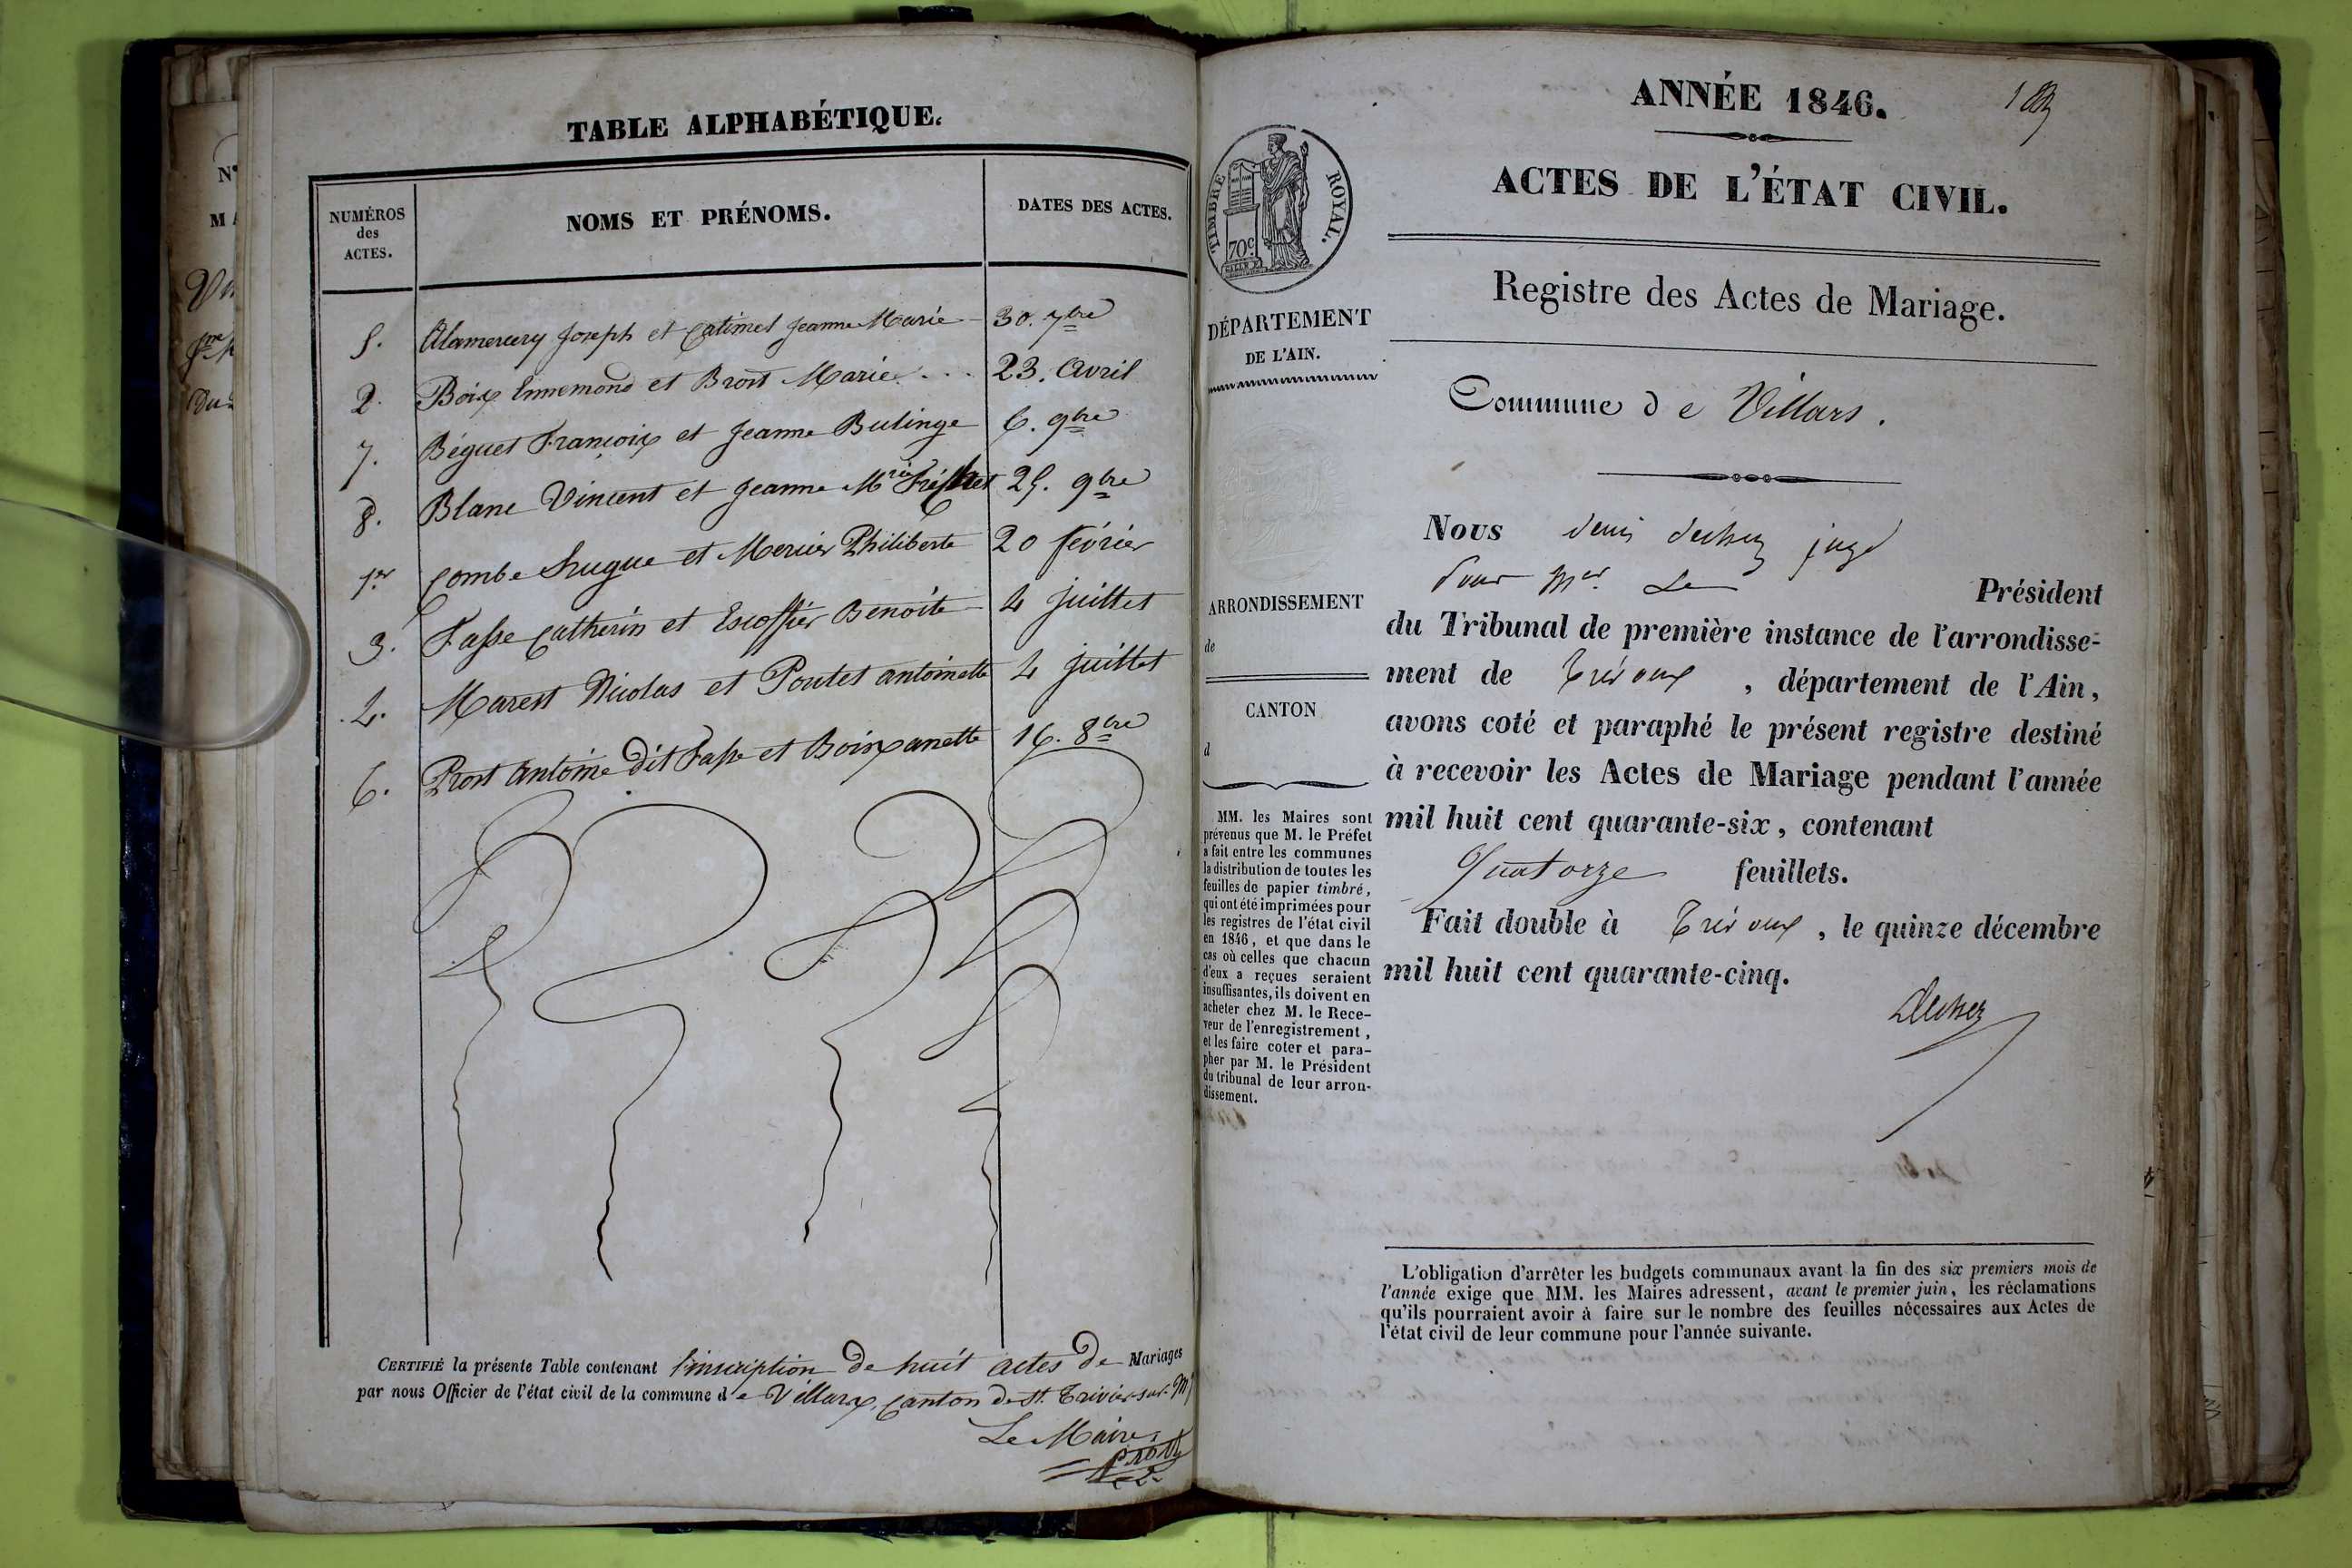 TABLE ALPHABÉTIQUE.
NUMÉROS des ACTES.
NOMS ET PRÉNOMS.
DATES DES ACTES.
5. Alamercery Joseph et Catimel Jeanne Marie 30. 7bre
2. Boix Ennemond et Brost Marie . . . 23. Avril
7. Béguet François et Jeanne Bulinge 6. 9bre
8. Blanc Vincent et Jeanne Mrie 25. 9bre
1er Combe hugue et Mercier Philiberte 20 février
3. Fasse Catherin et Escoffier Benoite 4 juillet
4. Marest Nicolas et Poutet antoinette 4 juillet
6. Prost Antoine dit Fasse et Boix anette 16. 8bre
CERTIFIÉ la présente Table contenant l'inscription de huit actes de Mariages
par nous Officier de l'état civil de la commune de Villars, Canton de St. Trivier sur Mt
Le Maire,
Prost
N°
MA
Du
ANNÉE 1846.
ACTES DE L'ÉTAT CIVIL.
TIMBRE ROYAL.
70c
Registre des Actes de Mariage.
DÉPARTEMENT
DE L'AIN.
Commune de Villars.
Nous denis dechez juge
pour Mr Le Président
du Tribunal de première instance de l'arrondisse-
ment de Trévoux, département de l'Ain,
avons coté et paraphé le présent registre destiné
à recevoir les Actes de Mariage pendant l'année
mil huit cent quarante-six, contenant
Quatorze feuillets.
Fait double à Trévoux, le quinze décembre
mil huit cent quarante-cinq.
Dechez
ARRONDISSEMENT
de
CANTON
d
MM. les Maires sont
prévenus que M. le Préfet
a fait entre les communes
la distribution de toutes les
feuilles de papier timbré,
qui ont été imprimées pour
les registres de l'état civil
en 1846, et que dans le
cas où celles que chacun
d'eux a reçues seraient
insuffisantes, ils doivent en
acheter chez M. le Rece-
veur de l'enregistrement,
et les faire coter et para-
pher par M. le Président
du tribunal de leur arron-
dissement.
L'obligation d'arrêter les budgets communaux avant la fin des six premiers mois de
l'année exige que MM. les Maires adressent, avant le premier juin, les réclamations
qu'ils pourraient avoir à faire sur le nombre des feuilles nécessaires aux Actes de
l'état civil de leur commune pour l'année suivante.